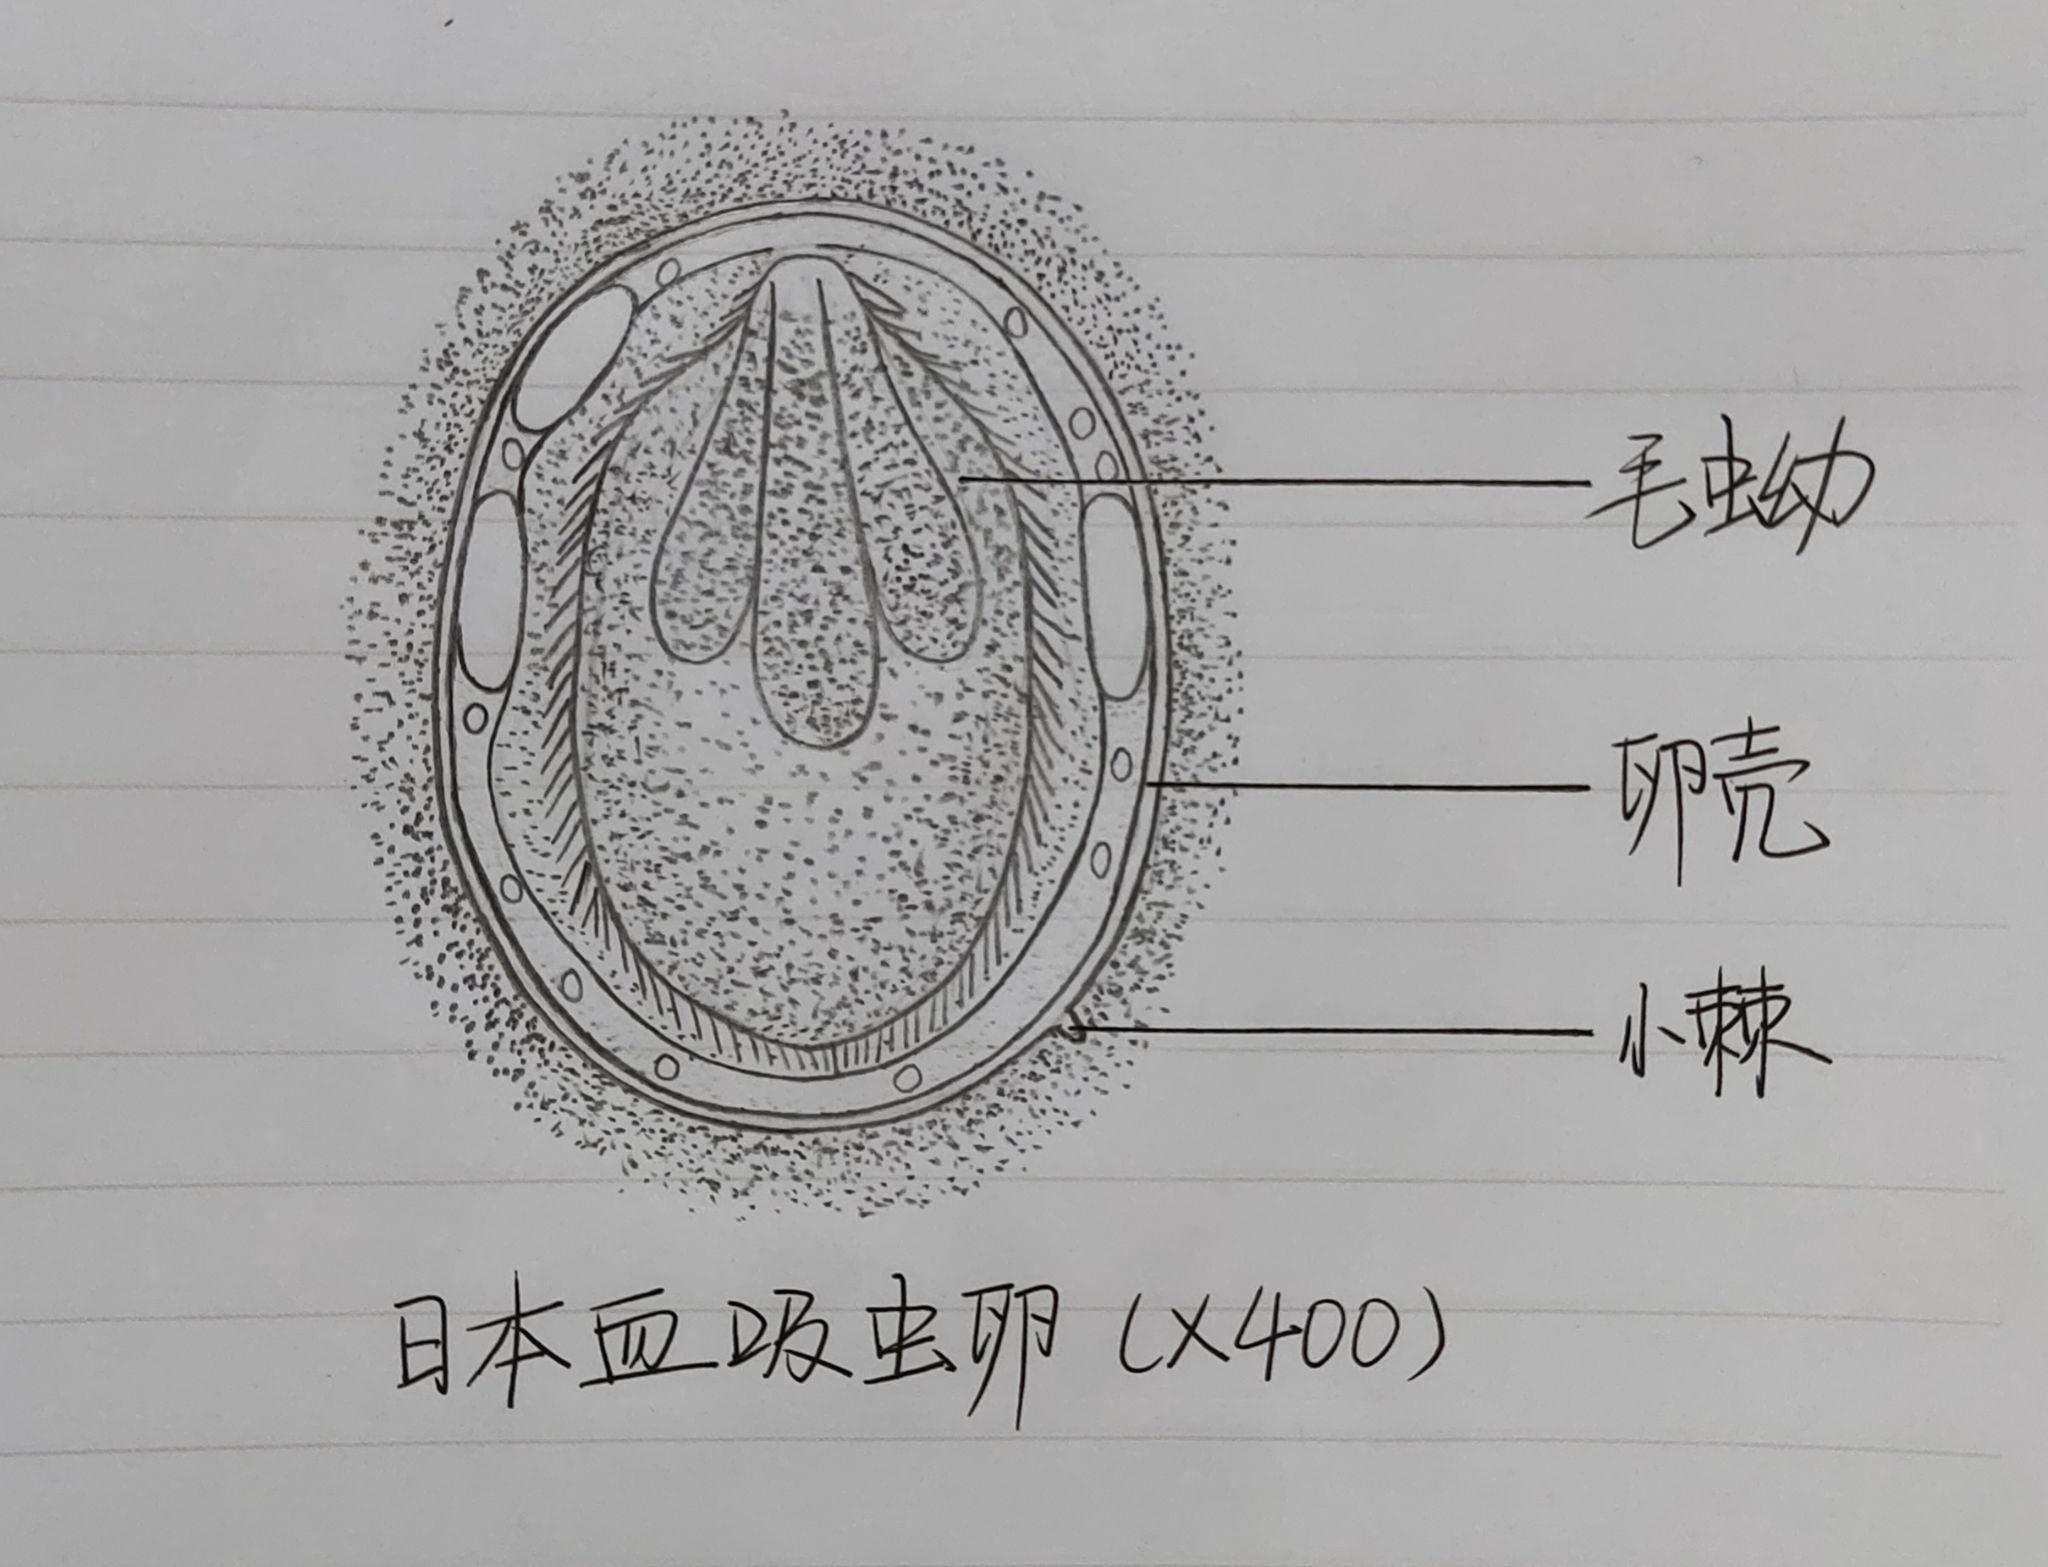 毛虫幼
卵壳
小棘
日本血吸虫卵（X400）